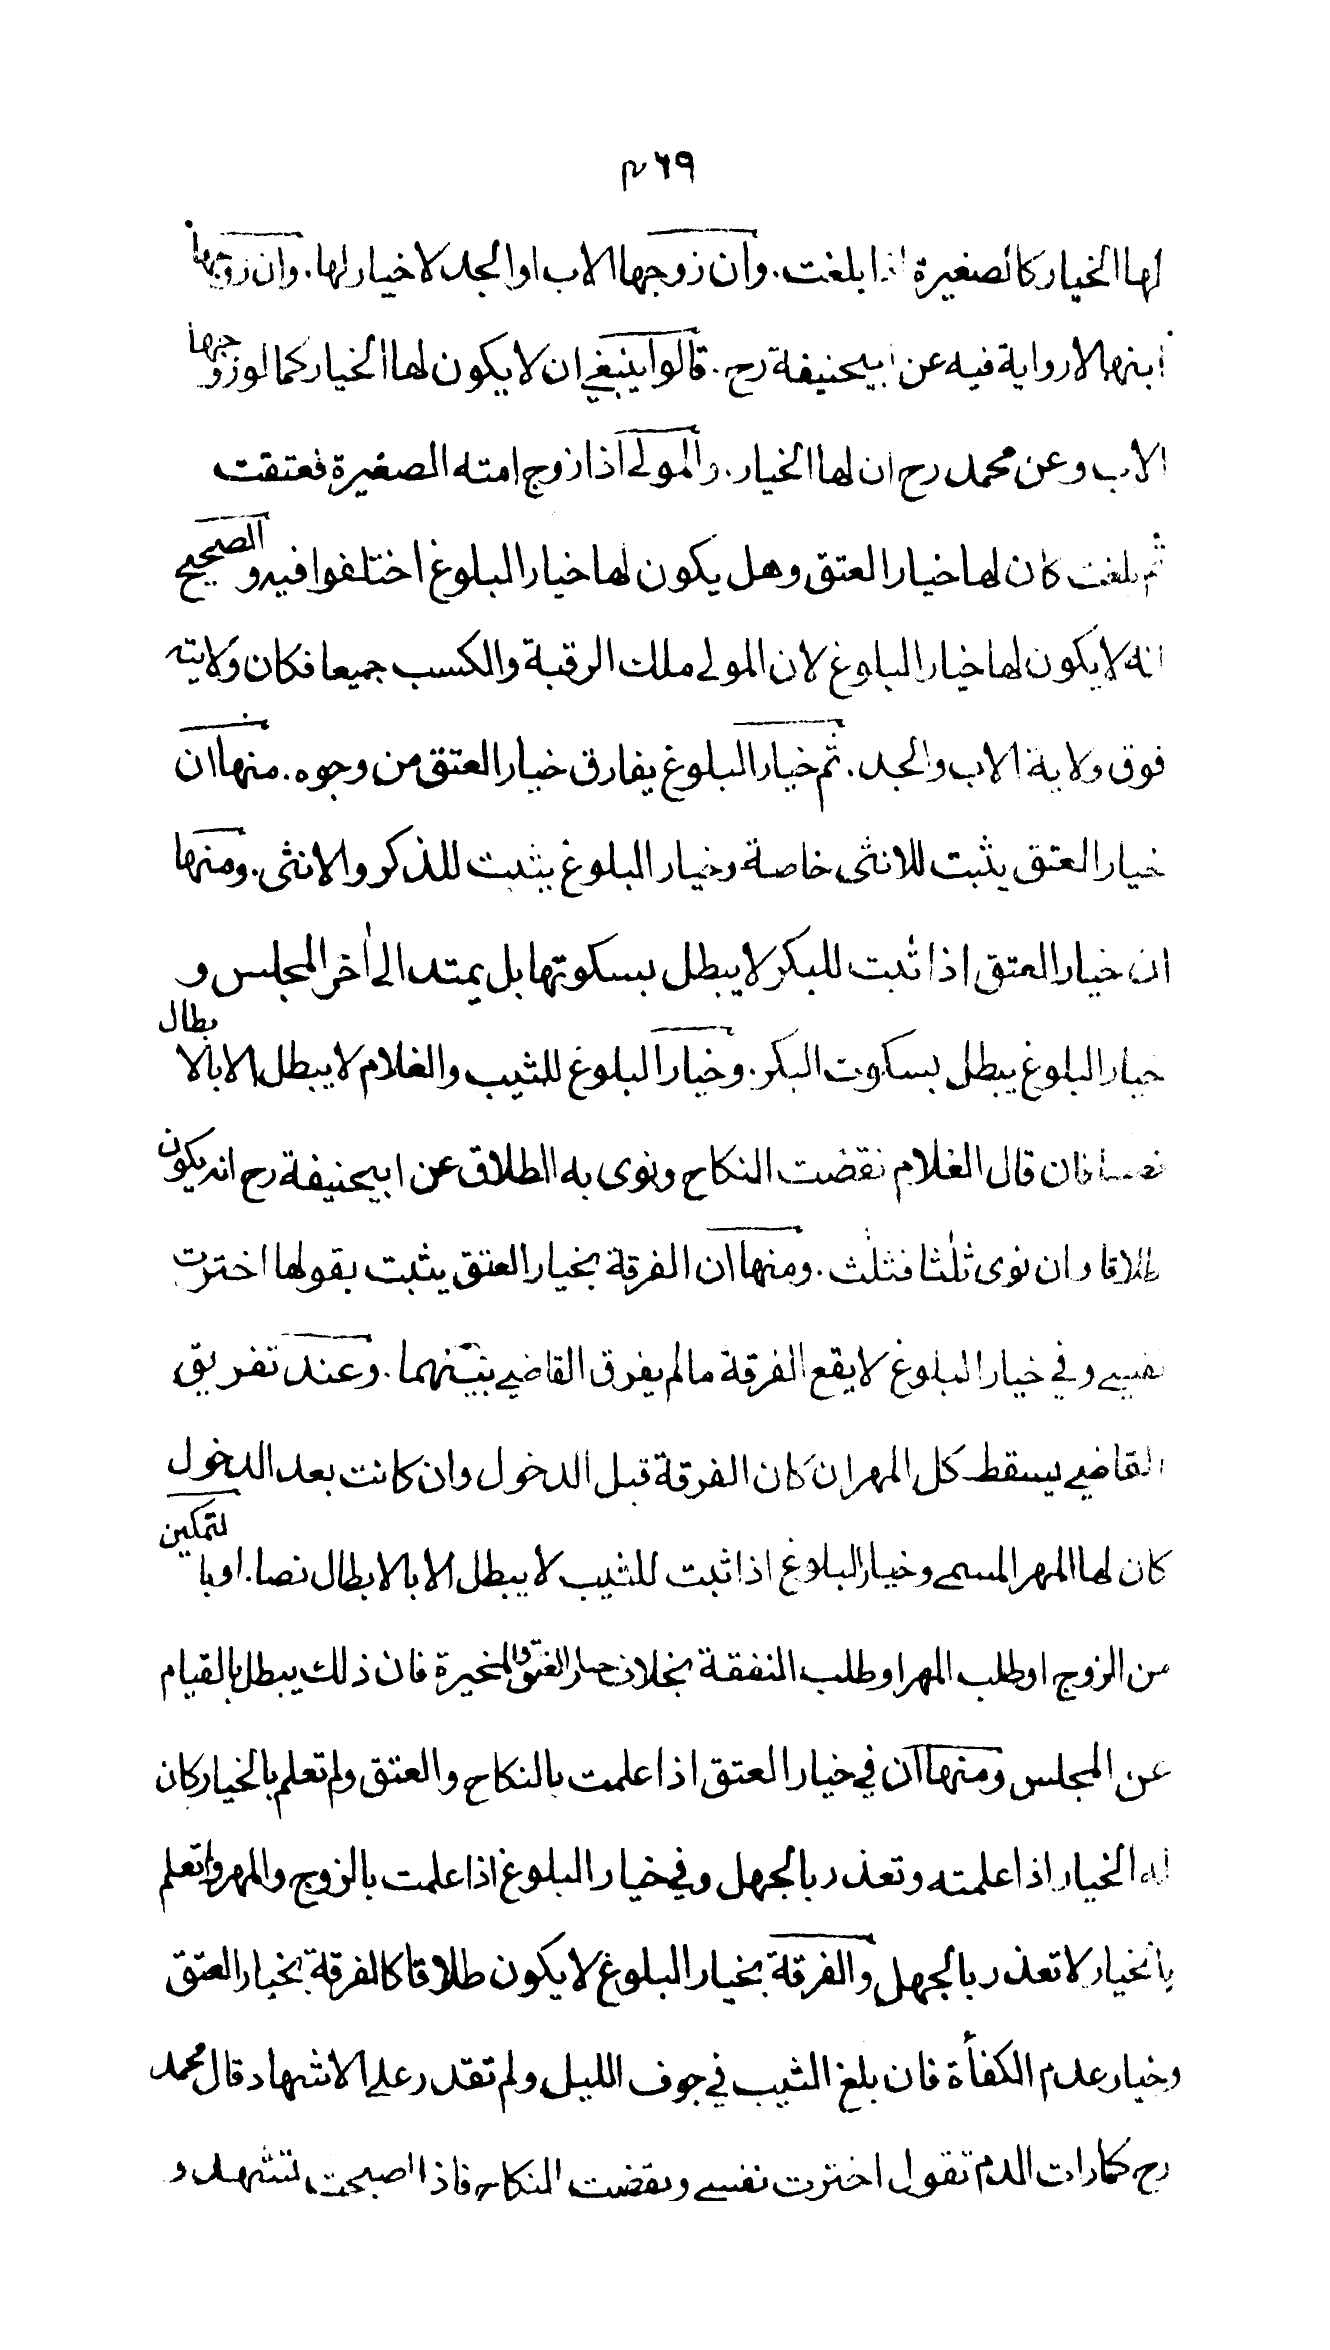 ٤٦٩
لها الخيار كالصغيرة اذا بلغت. وان زوجها الاب او الجد لا خيار لها. وان زوجها
ابنها لا رواية فيه عن ابيحنيفة رح. قالوا ينبغي ان لا يكون لها الخيار كما لو زوجها
الاب وعن محمد رح ان لها الخيار. والمولى اذا زوج امته الصغيرة فعتقت
ثم بلغت كان لها خيار العتق وهل يكون لها خيار البلوغ اختلفوا فيه والصحيح
انه لا يكون لها خيار البلوغ لان المولى ملك الرقبة والكسب جميعا فكان ولايته
فوق ولاية الاب والجد. ثم خيار البلوغ يفارق خيار العتق من وجوه. منها ان
خيار العتق يثبت للانثى خاصة وخيار البلوغ يثبت للذكر والانثى. ومنها
ان خيار العتق اذا ثبت للبكر لا يبطل بسكوتها بل يمتد الى أخر المجلس و
خيار البلوغ يبطل بسكوت البكر. وخيار البلوغ للثيب والغلام لا يبطل الا بالابطال
نصا فان قال الغلام نقضت النكاح ونوى به الطلاق عن ابيحنيفة رح انه يكون
طلاقا وان نوى ثلثا فثلث. ومنها ان الفرقة بخيار العتق يثبت بقولها اخترت
نفسي وفي خيار البلوغ لا يقع الفرقة ما لم يفرق القاضي بينهما. وعند تفريق
القاضي يسقط كل المهر ان كان الفرقة قبل الدخول وان كانت بعد الدخول
كان لها المهر المسمى وخيار البلوغ اذا ثبت للثيب لا يبطل الا بالابطال نصا. او بالتمكين
من الزوج او طلب المهر او طلب النفقة بخلاف خيار العتق والمخيرة فان ذلك يبطل بالقيام
عن المجلس ومنها ان في خيار العتق اذا علمت بالنكاح والعتق ولم تعلم بالخيار كان
له الخيار اذا علمته وتعذر بالجهل وفي خيار البلوغ اذا علمت بالزوج والمهر ولم تعلم
بالخيار لا تعذر بالجهل والفرقة بخيار البلوغ لا يكون طلاقا كالفرقة بخيار العتق
وخيار عدم الكفأة فان بلغ الثيب في جوف الليل ولم تقدر على الاشهاد قال محمد
رح كما رات الدم تقول اخترت نفسي ونقضت النكاح فاذا اصبحت تشهد و